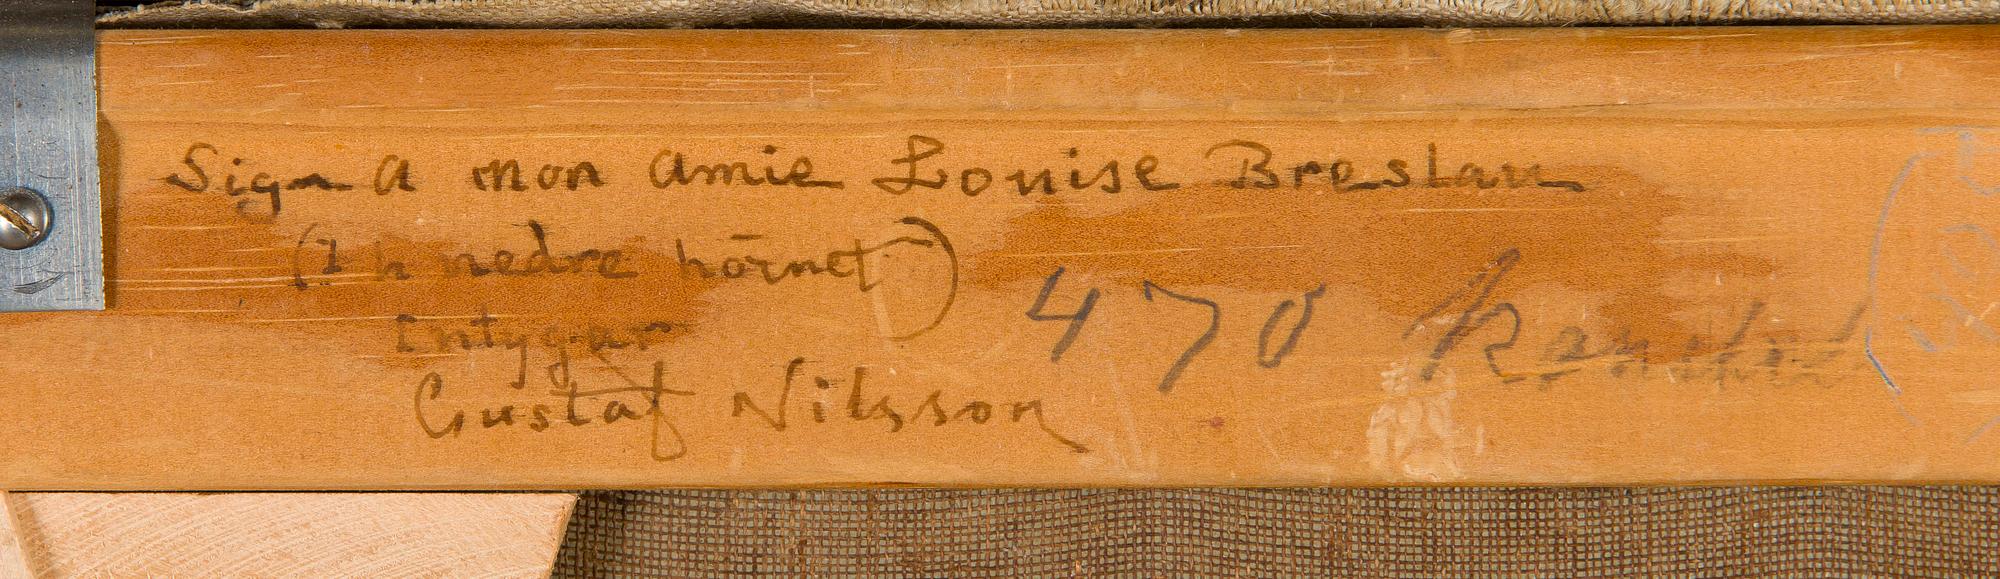 Sign a mon amie Louise Breslau
(I h nedre hörnet)
Intygar
Gustaf Nilsson
470